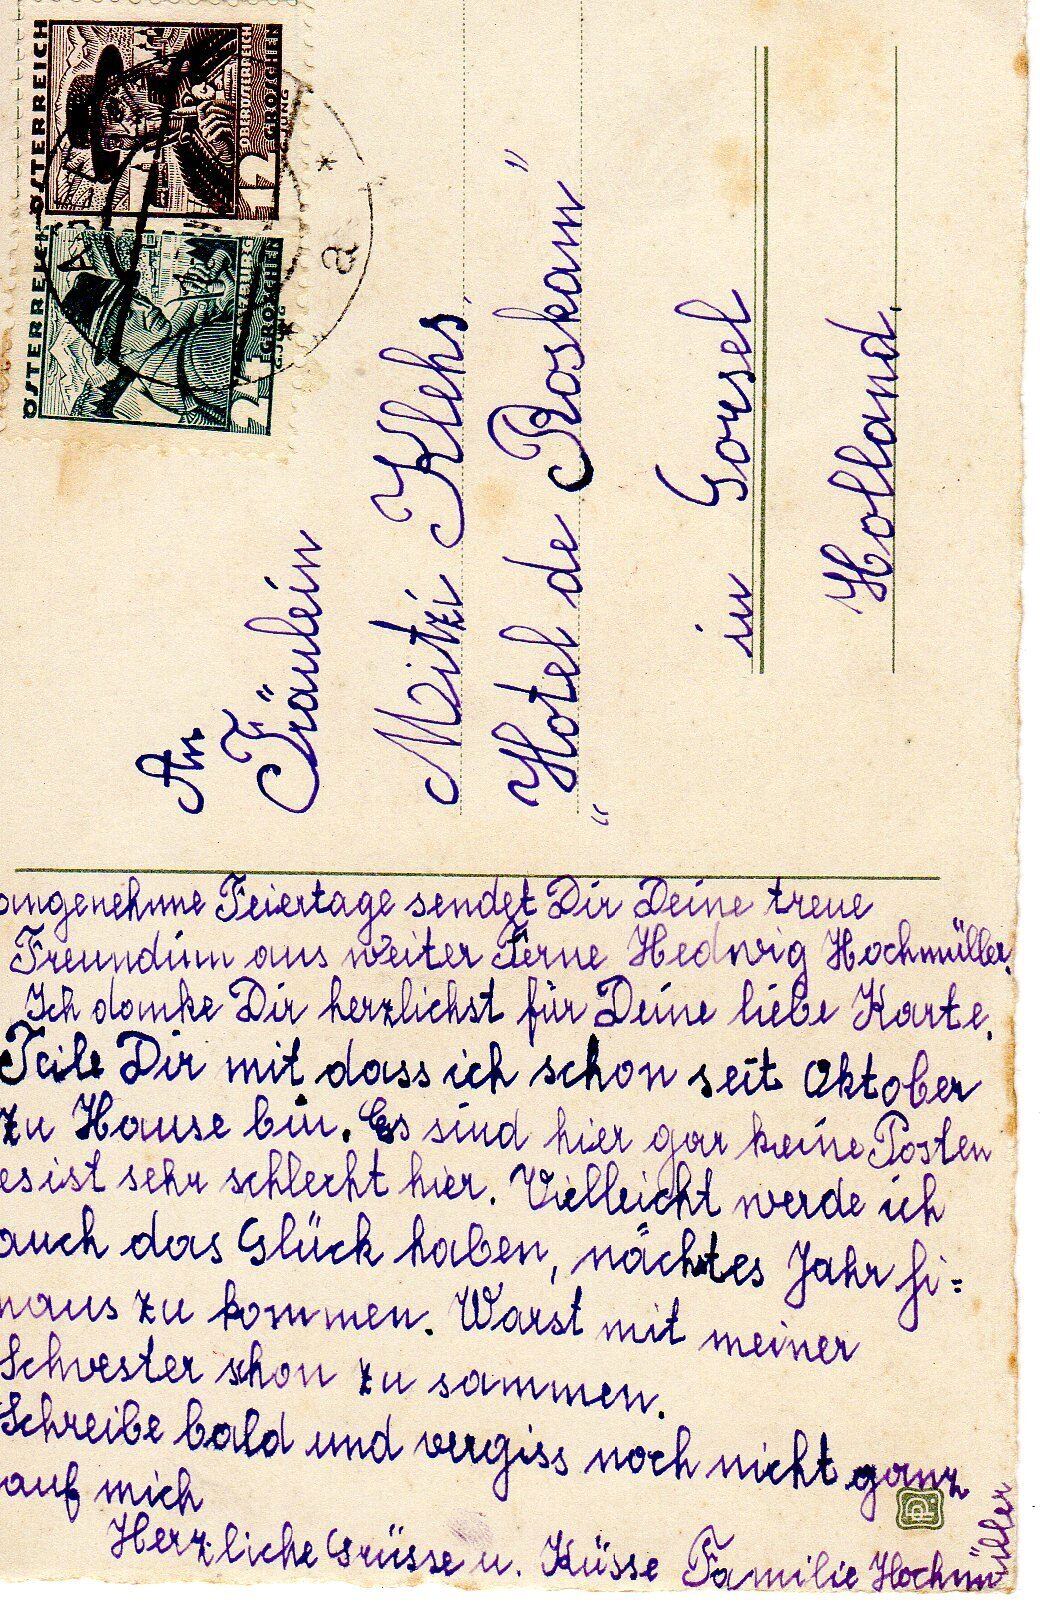 ÖSTERREICH
OBERÖSTERREICH
12 GROSCHEN
G. JUNG
ÖSTERREICH
24 GROSCHEN
G. JUNG
a
An
Fräulein
Mitzi Klehs,
"Hotel de Roskam"
in Gorsel
Holland.
angenehme Feiertage sendet Dir Deine treue
Freundin aus weiter Ferne Hedwig Hochmüller.
Ich danke Dir herzlichst für Deine liebe Karte.
Teile Dir mit dass ich schon seit Oktober
zu Hause bin. Es sind hier gar keine Posten
es ist sehr schlecht hier. Vielleicht werde ich
auch das Glück haben, nächtes Jahr hi=
naus zu kommen. Warst mit meiner
Schwester schon zu sammen.
Schreibe bald und vergiss noch nicht ganz
auf mich
Herzliche Grüsse u. Küsse Familie Hochmüller